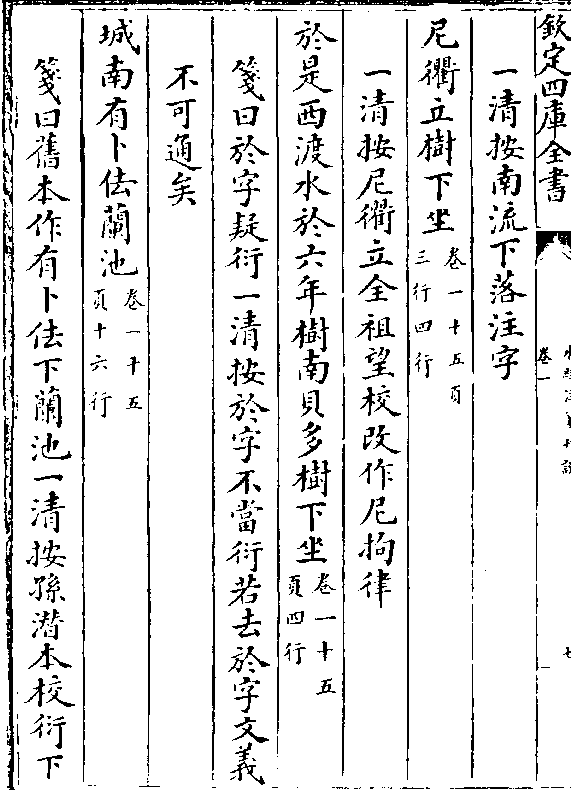 欽定四庫全書
卷一
七
一清按南流下落注字
尼衢立樹下坐卷一十五頁三行四行
一清按尼衢立全祖望校改作尼拘律
於是西渡水於六年樹南貝多樹下坐卷一十五頁四行
箋曰於字疑衍一清按於字不當衍若去於字文義
不可通矣
城南有卜佉蘭池卷一十五頁十六行
箋曰舊本作有卜佉下蘭池一清按孫潛本校衍下